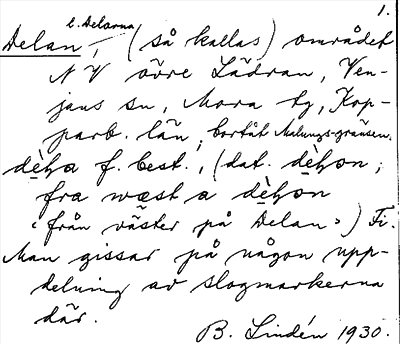 1.
l. Delarna
Delan, (så kallas) området
NV övre Lädran, Ven-
jans sn, Mora tg, Kop-
parb. län, bortåt Malungs-gränsen.
f. best., (dat.
fra wæst a
"från väster på Delan") Fi.
Man gissar på någon upp-
delning av slogmarkerna
där.
B. Lindén 1930.